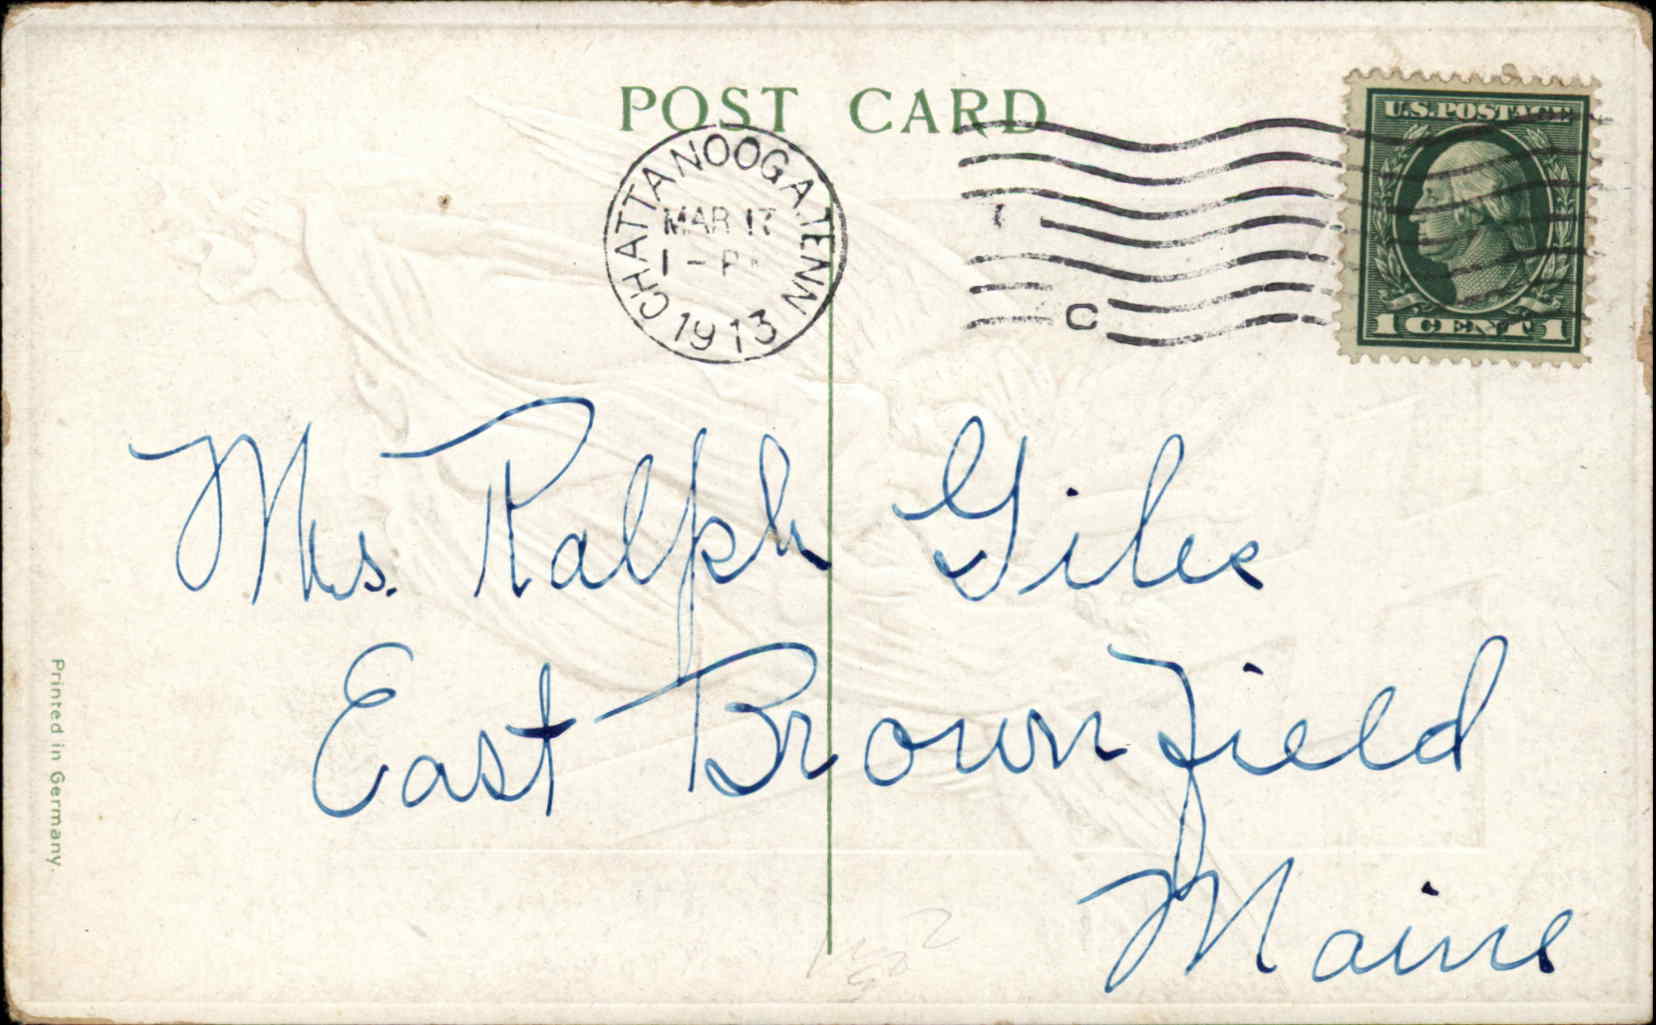 POST CARD
U.S. POSTAGE
1 CENT 1
CHATTANOOGA, TENN
MAR 17
1 - P
1913
C
Mrs. Ralph Giles
East Brownfield
Maine
Printed in Germany.